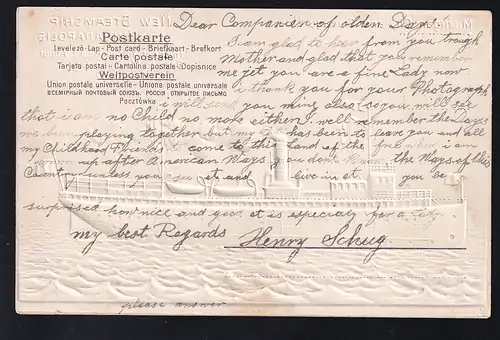 Dear Companien of olden Days.
Postkarte
Levelező-Lap - Post card - Briefkaart - Brefkort
Carte postale
Tarjeta postal - Cartolina postale - Dopisnice
Weltpostverein
Union postale universelle - Unione postale universale
ВСЕМІРНЫЙ ПОЧТОВЫЙ СОЮЗЪ. РОССІЯ ОТКРЫТОЕ ПИСЬМО
Pocztówka
I am glad to hear from you trough
Mother and glad that you remember
me yet you are a fine Lady now
i thank you for your Photograph
i will send you mine also so you will see
that i am no Child no more either. well remember the Days
we been playing together but my to has been to leave you and all
my Childhood Friends to come to this Land of the free where i am
up after American Ways you dont know the Ways of this
Country unless you see it and live in it you be
surprised how nice and it is especialy for a
my best Regards Henry Schug
please answer